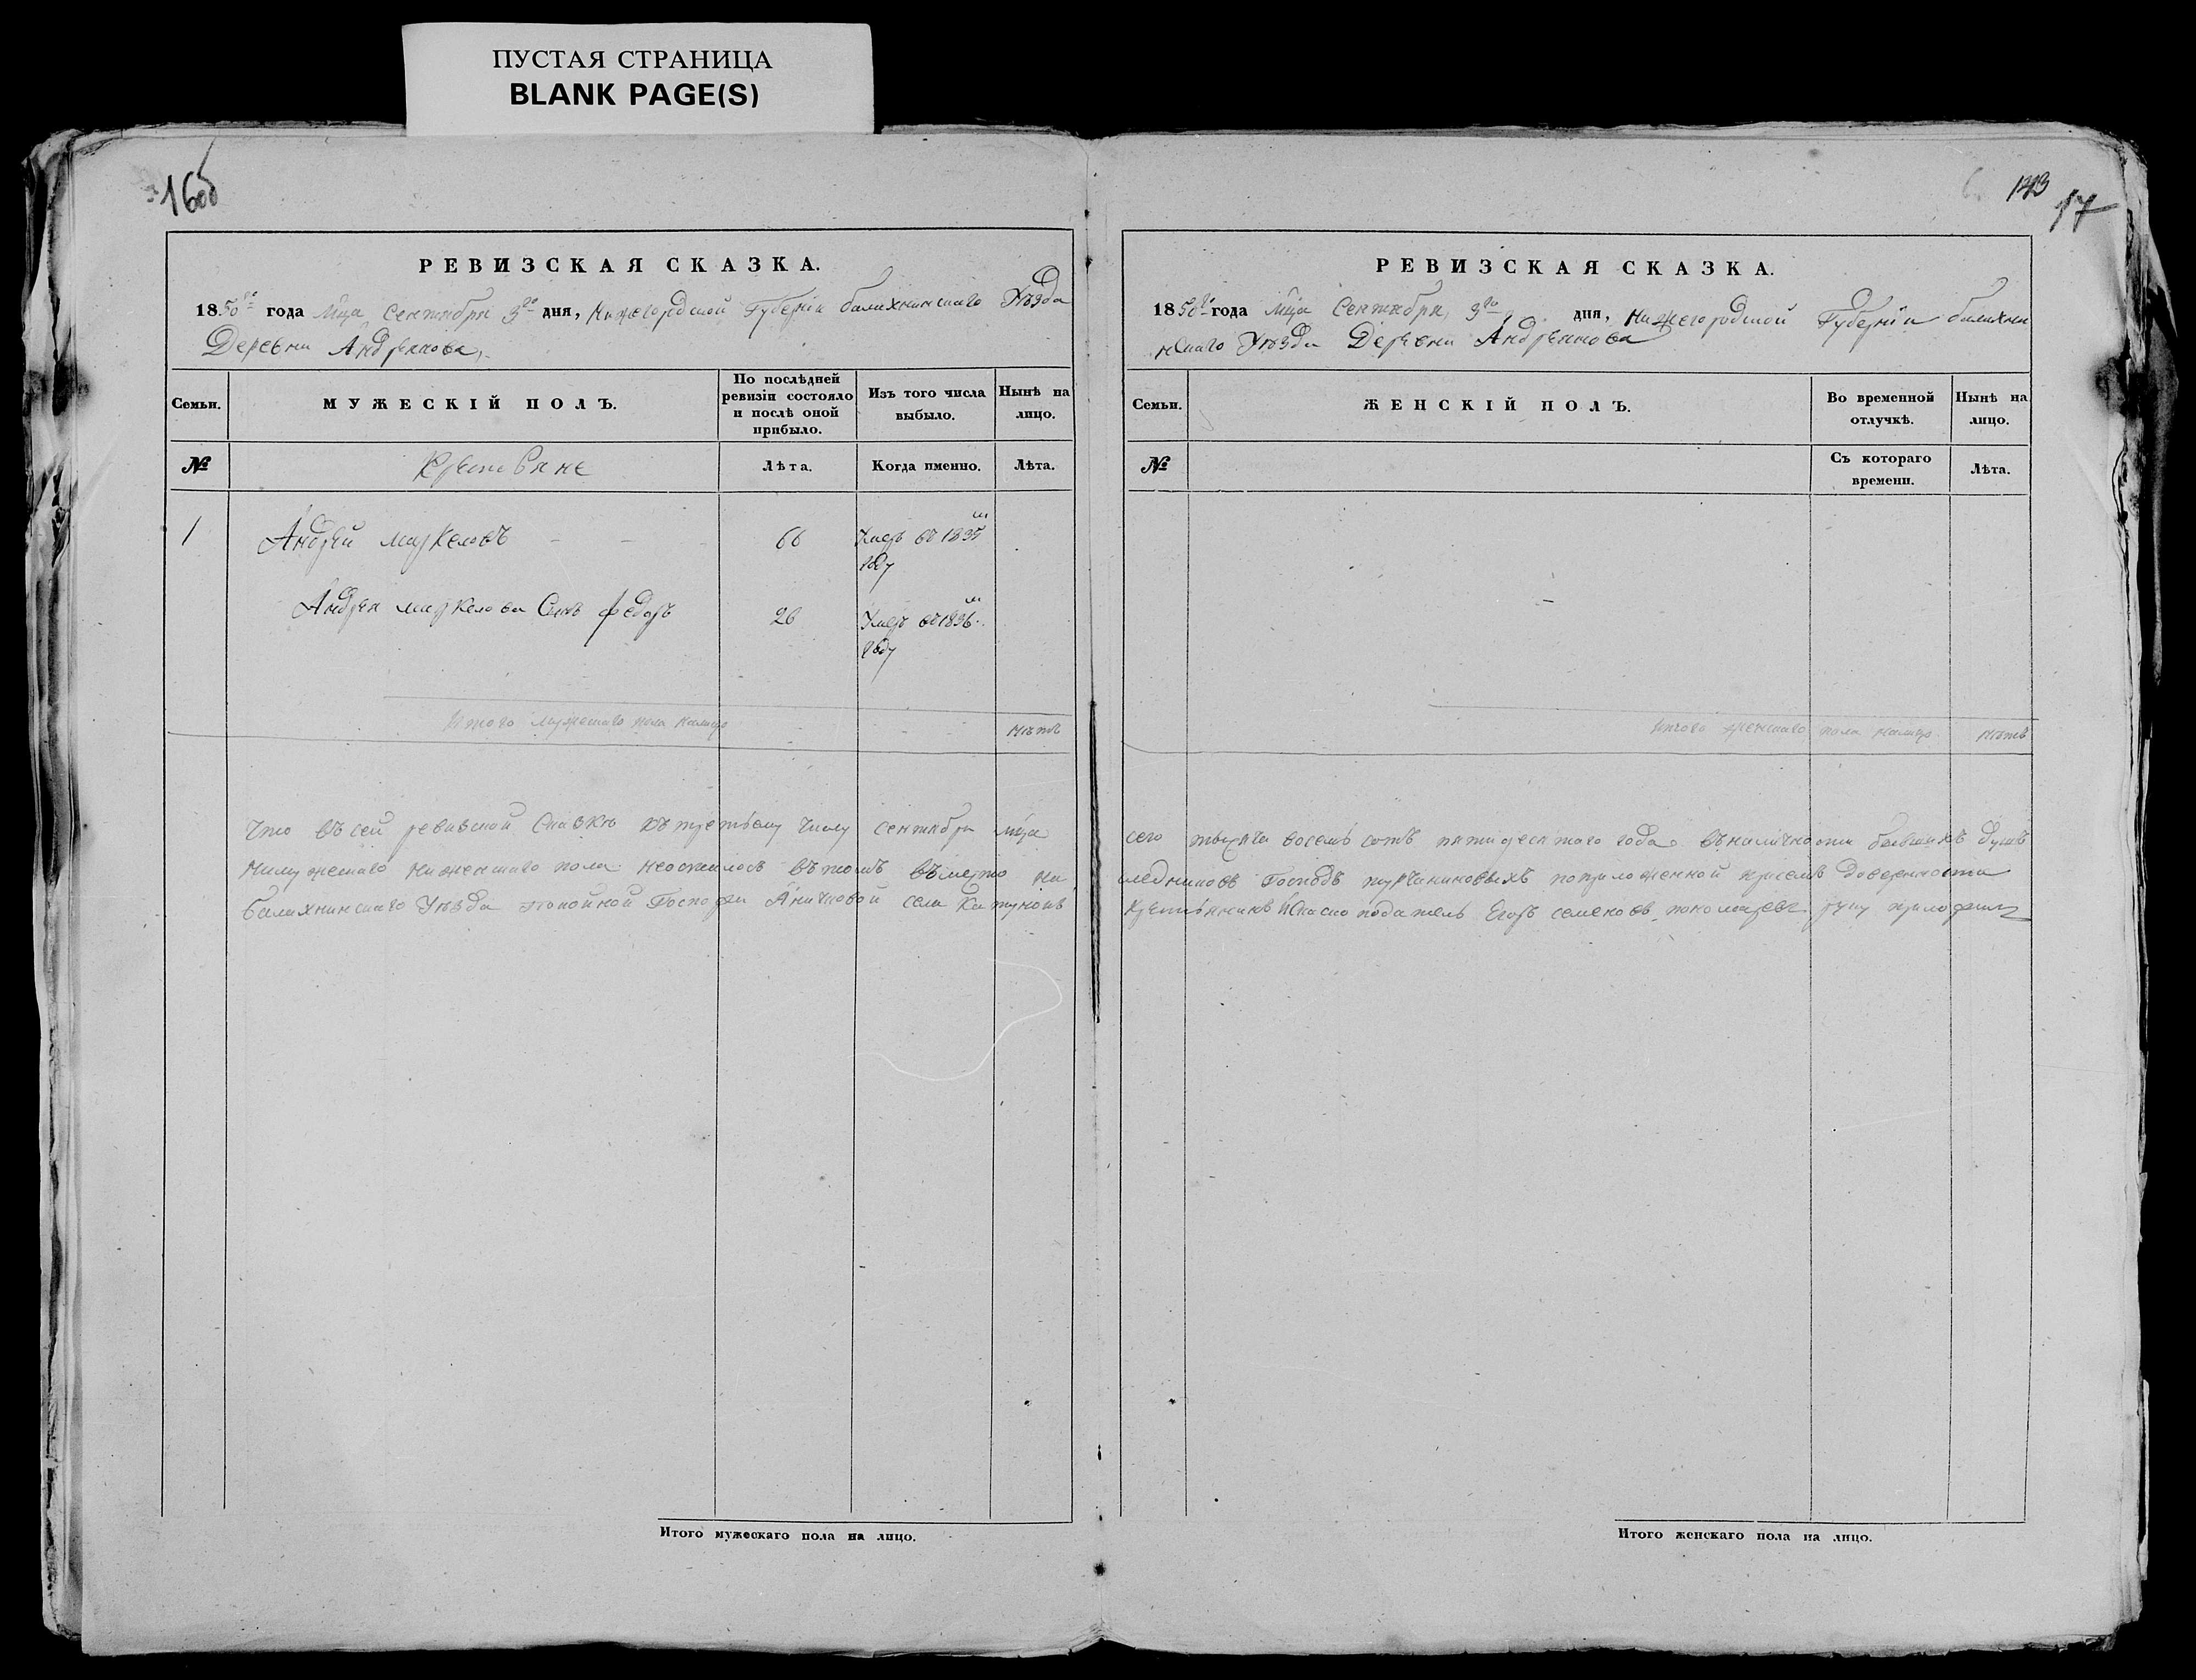 ПУСТАЯ СТРАНИЦА
BLANK PAGE(S)
16об
РЕВИЗСКАЯ СКАЗКА.
1850го года Мца Сентября 3го дня, Нижегородской Губернiи балахнинскаго Уѣзда
Деревни Андреянова
Семьи.
МУЖЕСКІЙ ПОЛЪ.
По послѣдней ревизіи состояло и послѣ оной прибыло.
Изъ того числа выбыло.
Нынѣ на лицо.
№
Крестьяне
Лѣта.
Когда именно.
Лѣта.
1
Андрей маркеловъ
66
Умеръ въ 1835м
году
Андрея маркелова Сынъ федоръ
26
Умеръ въ 1836м
году
Итого мужескаго пола налицо
нѣтъ
Что въ сей ревизской Сказкѣ къ третьему числу сентября мца
нимужескаго ниженскаго пола неосталось въ томъ вместо на
балахнинскаго Уѣзда покойной Госпожи Аничковой села Катунокъ
Итого мужескаго пола на лицо.
143
17
РЕВИЗСКАЯ СКАЗКА.
1850го года Мца Сентября 3го дня, нижегородской Губернiи балахни
нскаго Уѣзда Деревни Андреянова
Семьи.
ЖЕНСКІЙ ПОЛЪ.
Во временной отлучкѣ.
Нынѣ на лицо.
№
Съ котораго времени.
Лѣта.
Итого женскаго пола налицо
нѣтъ
сего тысяча восемь сотъ пятидесятаго года въ наличности бывшихъ душъ
следниковъ Господъ турчаниновыхъ поприложенной присемъ доверенности
Крестьянинъ Исказко податель Егоръ семеновъ руку приложилъ
Итого женскаго пола на лицо.